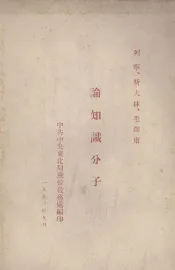 列寧、斯大林、毛澤東
論知識分子
中共中央東北局宣傳部編印
一九五